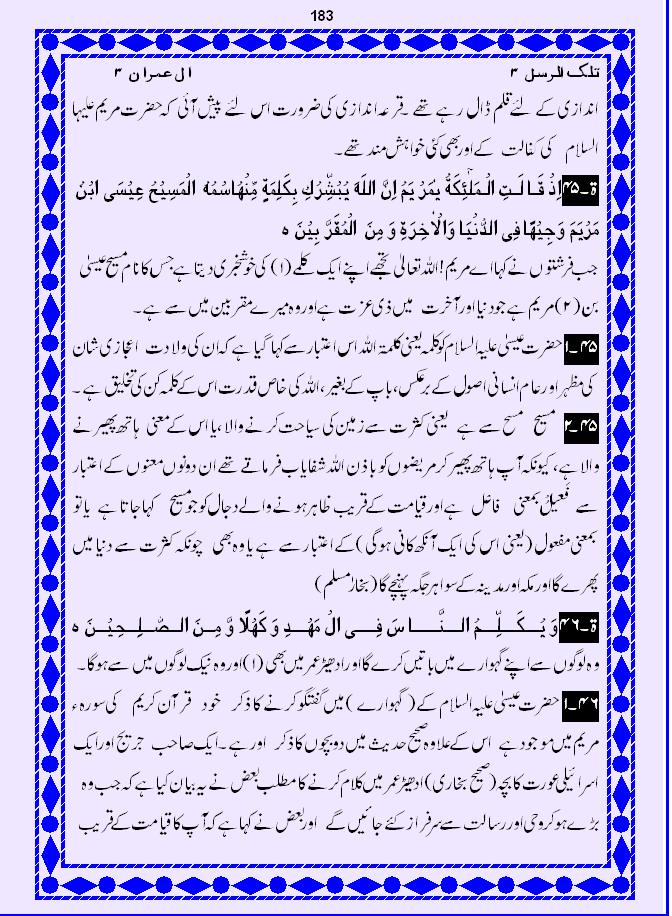 183
تلک الرسل ۳ ال عمران ۳
اندازی کے لئے قلم ڈال رہے تھے ۔قرعہ اندازی کی ضرورت اس لئے پیش آئی کہ حضرت مریم علیہا
السلام کی کفالت کے اور بھی کئی خواہش مند تھے۔
ۃ۔۴۵ اِذْ قَالَتِ الْمَلٰٓئِکَۃُ یٰمَرْیَمُ اِنَّ اللّٰہَ یُبَشِّرُكِ بِكَلِمَۃٍ مِّنْہُ اسْمُہُ الْمَسِیْحُ عِیْسَی ابْنُ
مَرْیَمَ وَجِیْہًا فِی الدُّنْیَا وَالْاٰخِرَۃِ وَمِنَ الْمُقَرَّبِیْنَ ہ
جب فرشتوں نے کہا اے مریم! اللہ تعالٰی تجھے اپنے ایک کلمے (۱) کی خوشخبری دیتا ہے جس کا نام مسیح عیسٰی
بن (۲) مریم ہے جو دنیا اور آخرت میں ذی عزت ہے اور وہ میرے مقربین میں سے ہے۔
۴۵۔۱ حضرت عیسٰی علیہ السلام کو کلمہ یعنی کلمۃ اللہ اس اعتبار سے کہا گیا ہے کہ ان کی ولادت اعجازی شان
کی مظہر اور عام انسانی اصول کے برعکس، باپ کے بغیر، اللہ کی خاص قدرت اس کے کلمہ کن کی تخلیق ہے۔
۴۵۔۲ مسیح مسح سے ہے یعنی کثرت سے زمین کی سیاحت کرنے والا، یا اس کے معنی ہاتھ پھیرنے
والا ہے، کیونکہ آپ ہاتھ پھیر کر مریضوں کو باذن اللہ شفایاب فرماتے تھے ان دونوں معنوں کے اعتبار
سے فَعِیلٌ بمعنی فاعل ہے اور قیامت کے قریب ظاہر ہونے والے دجال کو جو مسیح کہا جاتا ہے یا تو
بمعنی مفعول (یعنی اس کی ایک آنکھ کانی ہوگی) کے اعتبار سے ہے یا وہ بھی چونکہ کثرت سے دنیا میں
پھرے گا اور مکہ اور مدینہ کے سوا ہر جگہ پہنچے گا (بخار مسلم)
ۃ۔۴۶ وَیُکَلِّمُ النَّاسَ فِی الْمَھْدِ وَكَھْلًا وَّمِنَ الصّٰلِحِیْنَ ہ
وہ لوگوں سے اپنے گہوارے میں باتیں کرے گا اور ادھیڑ عمر میں بھی (۱) اور وہ نیک لوگوں میں سے ہوگا۔
۴۶۔۱ حضرت عیسٰی علیہ السلام کے (گہوارے) میں گفتگو کرنے کا ذکر خود قرآن کریم کی سورہء
مریم میں موجود ہے اس کے علاوہ صحیح حدیث میں دو بچوں کا ذکر اور ہے۔ ایک صاحب جریج اور ایک
اسرائیلی عورت کا بچہ (صحیح بخاری) ادھیڑ عمر میں کلام کرنے کا مطلب بعض نے یہ بیان کیا ہے کہ جب وہ
بڑے ہو کر وحی اور رسالت سے سرفراز کئے جائیں گے اور بعض نے کہا ہے کہ آپ کا قیامت کے قریب